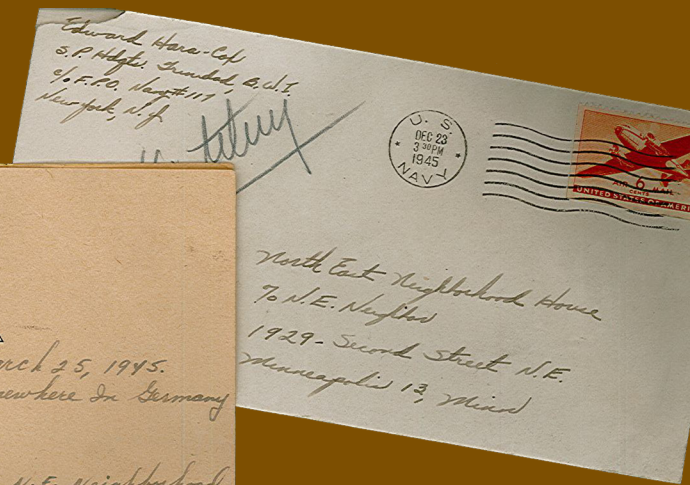 Edward Hara-Cox
S.P. Hdqts. Trinidad, B.W.I.
c/o F.P.O. Navy # 117
New York, N.Y.
U.S.
DEC 23
3 30 PM
1945
NAVY
AIR 6 MAIL
CENTS
UNITED STATES OF AMER
North East Neighborhood House
c/o N.E. Neighbor
1929 - Second Street N.E.
Minneapolis 13, Minn
arch 25, 1945.
mewhere In Germany
N.E. Neighborhood